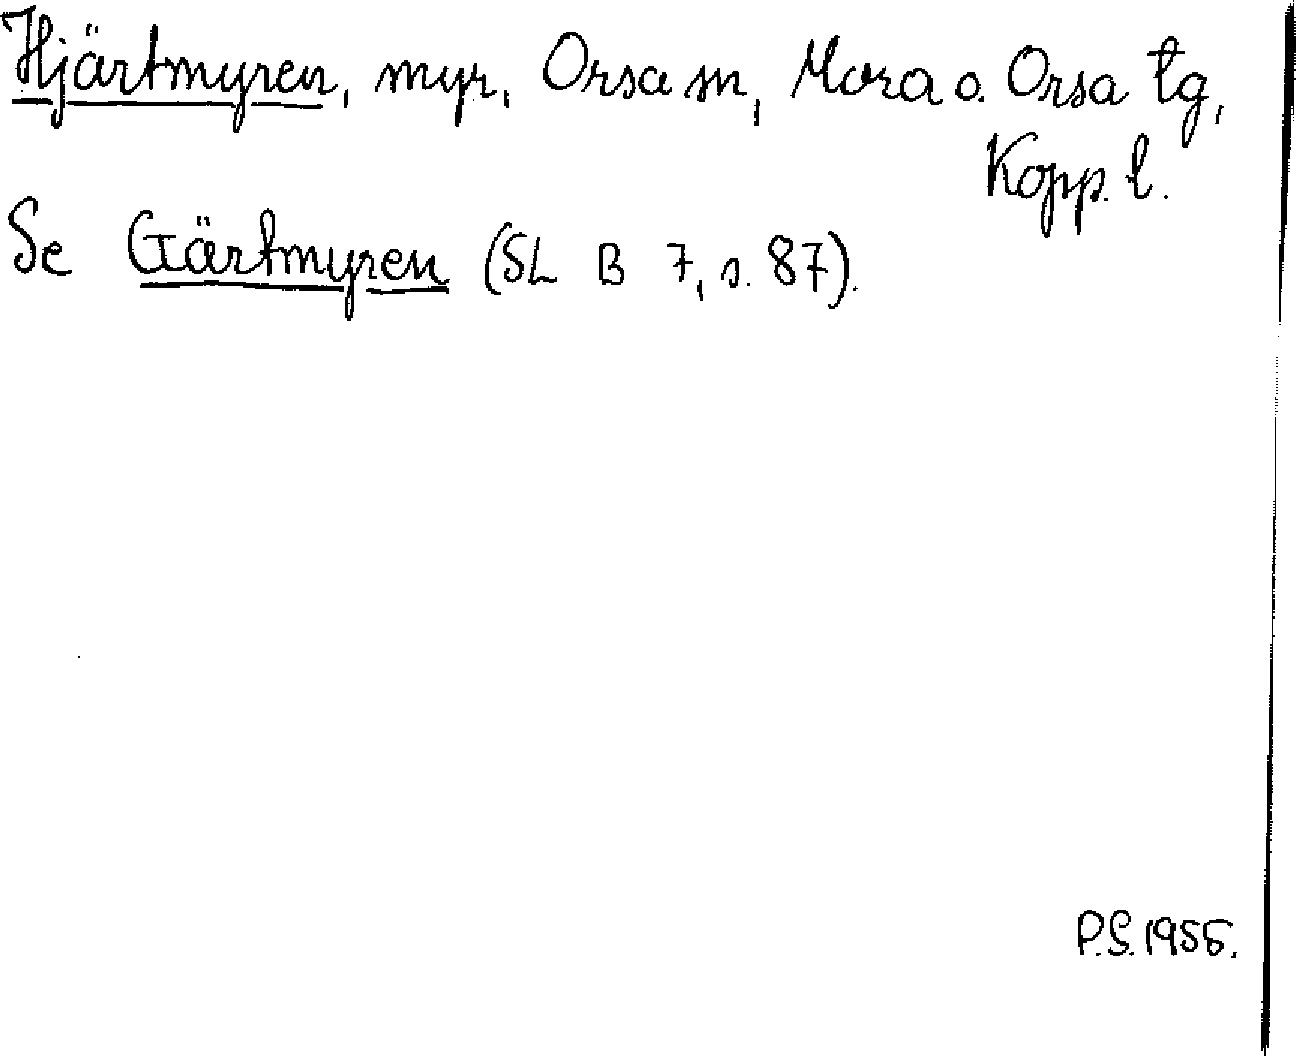 Hjärtmyren, myr, Orsa sn, Mora o. Orsa tg,
Kopp. l.
Se Gärtmyren (SL B 7, s. 87).
P.S. 1955.